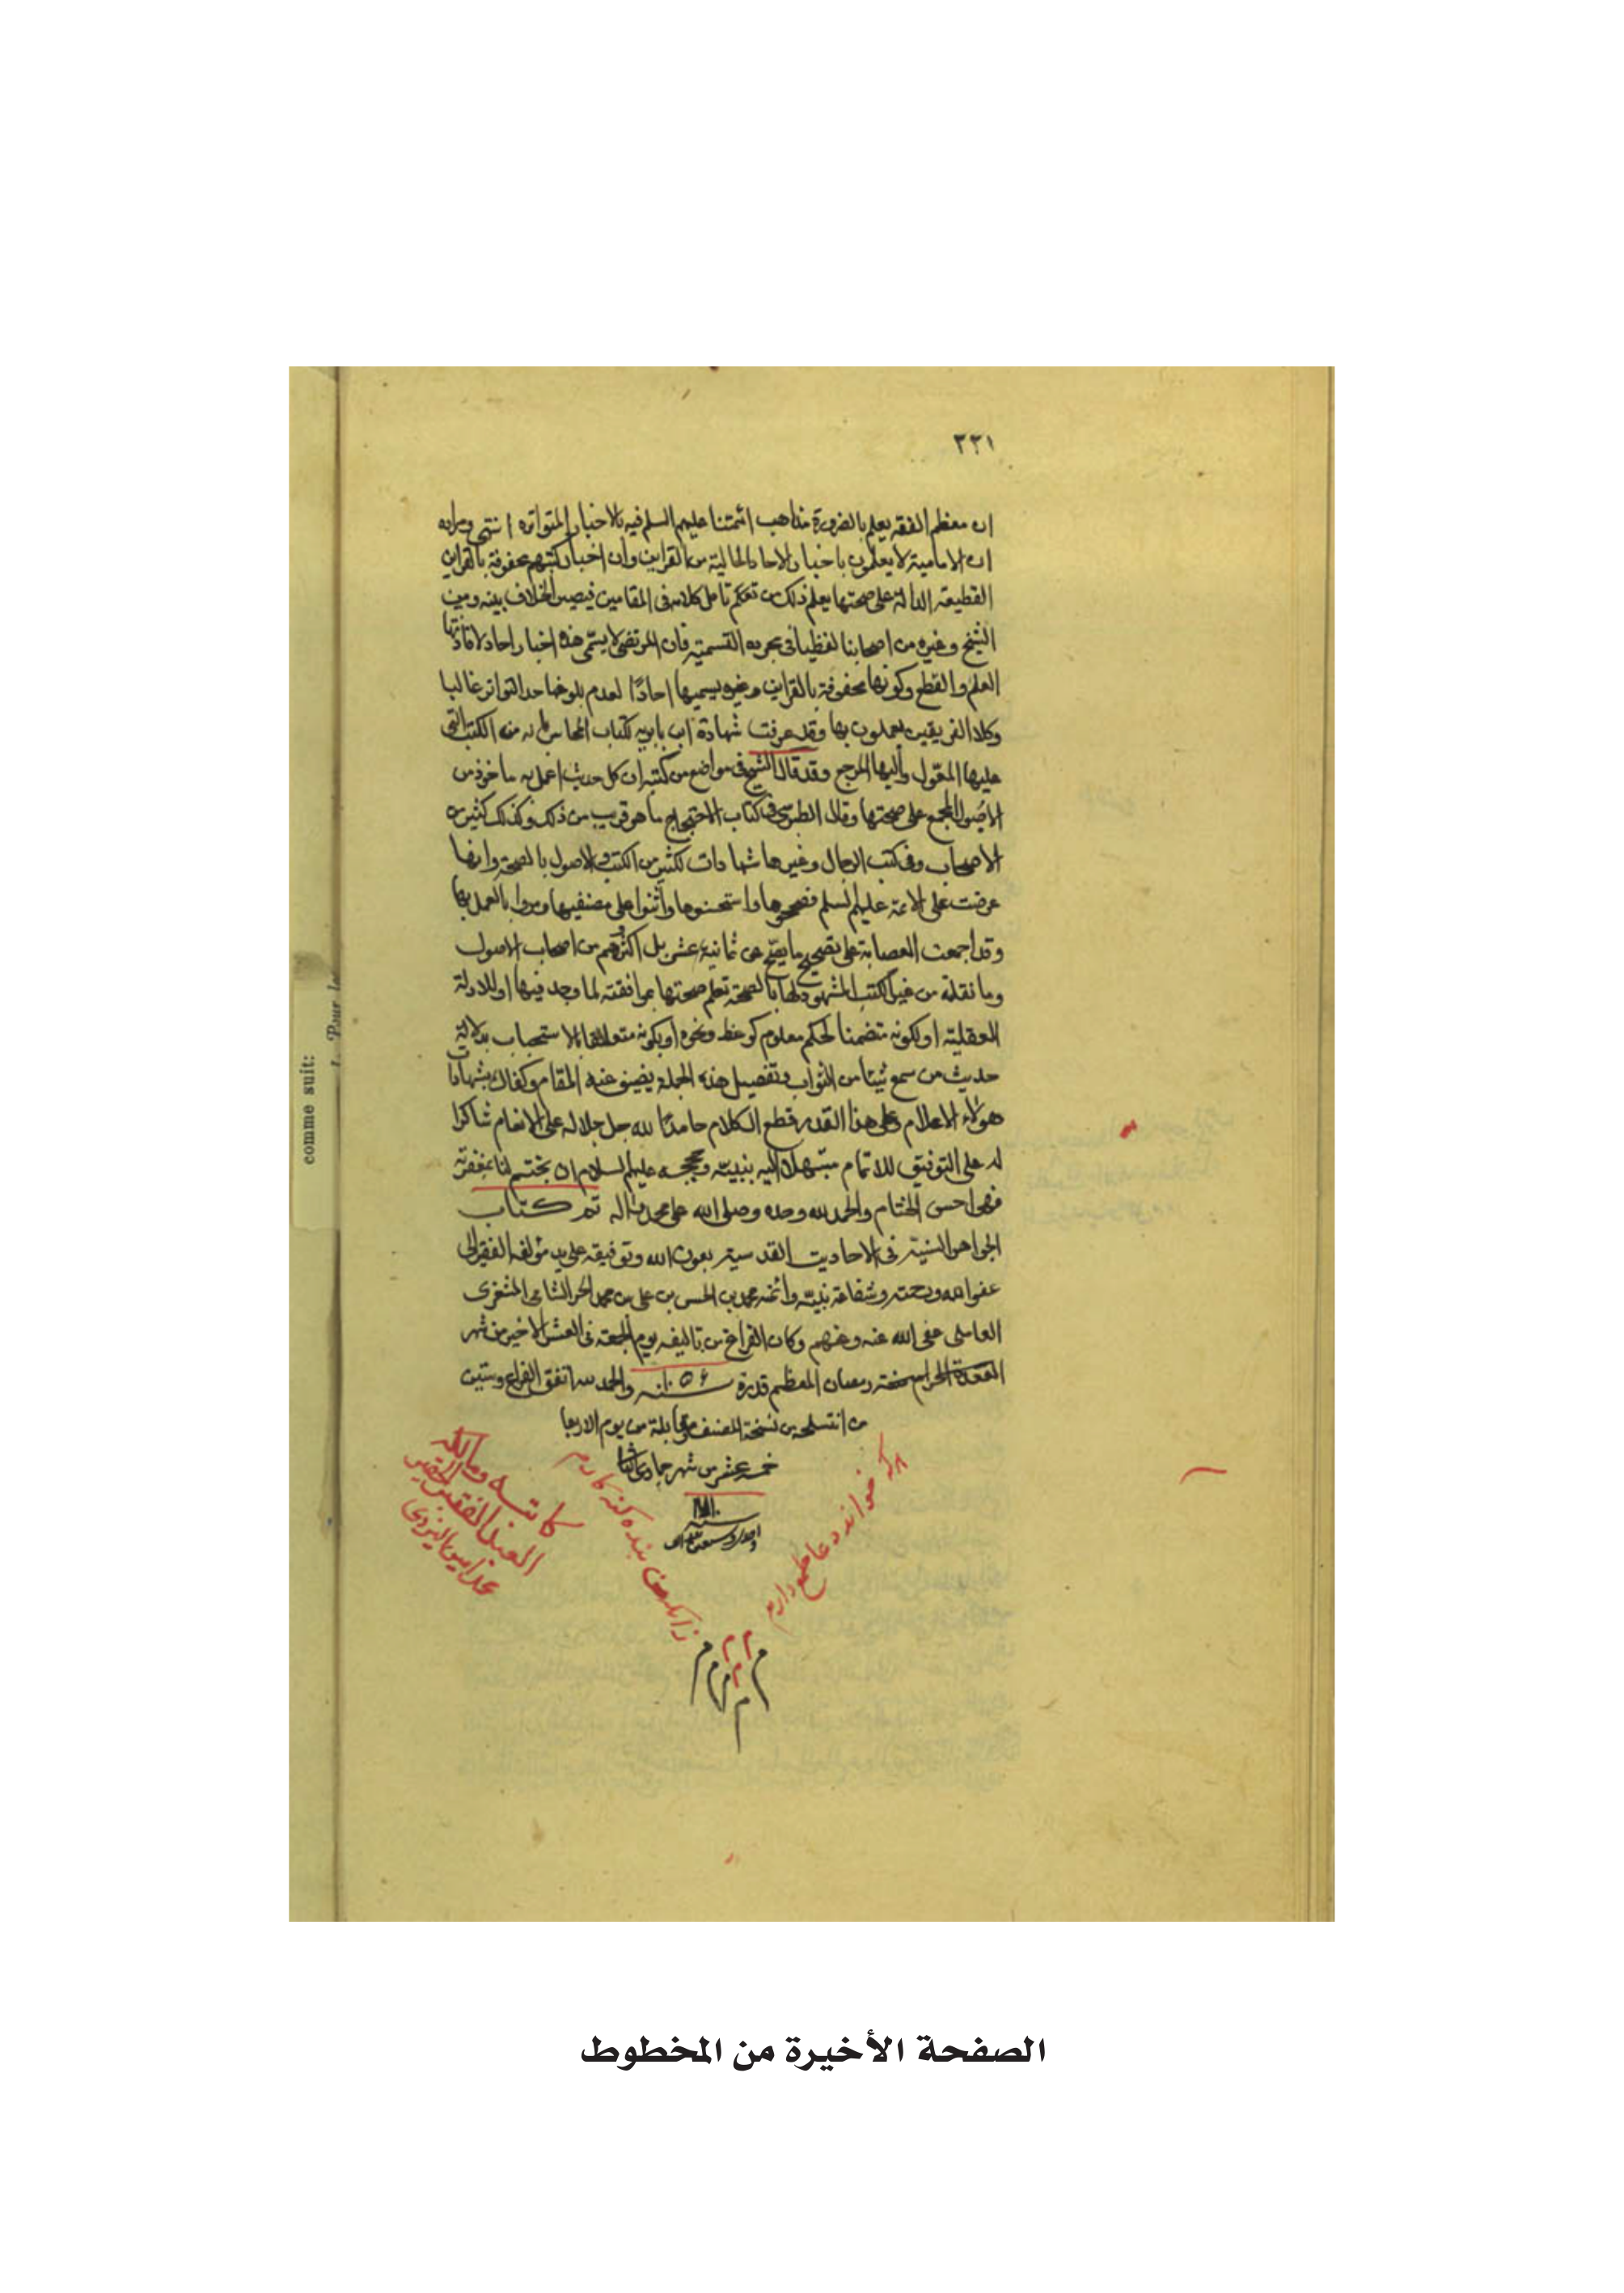 ٢٢١
ان معظم الفقه يعلم بالضرورة مذاهب ائمتنا عليهم السلم فيه بالاخبار المتواتره انتهى ومراده
ان الامامية لا يعلمون باخبار الاحاد الخالية من القراين وان اخبار كتبهم محفوفة بالقراين
القطيعة الدالة على صحتها يعلم ذلك من تأمل كلامه فى المقامين فيصير الخلاف بينه وبين
الشيخ وغيره من اصحابنا لفظيا فى مجرد التسمية فان المرتضى لا يسمى هذه اخبار احاد لافادتها
العلم والقطع وكونها محفوفة بالقراين وغيره يسميها احادًا لعدم بلوغها حد التواتر غالبا
وكلا الفريقين يعملون بها وقد عرفت شهادة ابن بابويه لكتاب المحاسن بانه من الكتب التى
عليها المعول واليها المرجع وقد قال الشيخ فى مواضع من كتبه ان كل حديث اعمل به ماخوذ من
الاصول المجمع على صحتها وقال الطبرسى فى كتاب الاحتجاج ما هو قريب من ذلك وكذلك كثير من
الاصحاب وفى كتب الرجال وغيرها شهادات لكثير من الكتب والاصول بالصحة وانها
عرضت على الائمة عليهم السلم فصححوها واستحسنوها واثنوا على مصنفيها وامروا بالعمل بها
وقد اجمعت العصابة على تصحيح ما يصح عن ثمانية عشر بل اكثرهم من اصحاب الاصول
وما نقلته من غير الكتب المشهود لها بالصحة تعلم صحتها بموافقته لما وجد فيها او للادلة
العقلية او لكونه متضمنا لحكم معلوم كوعظ ونحوه او بكونه متعلقا بالاستحباب بدلالة
حديث من سمع شيئا من الثواب وتفصيل هذه الجملة يضيق عنه المقام وكفاك بشهادات
هولاء الاعلام وعلى هذا القدر قطع الكلام حامدًا لله جل جلاله على الانعام شاكرا
له على التوفيق للاتمام مبتهلا اليه بنبيه وحججه عليهم السلام ان يختم لنا بمغفرته
فهو احسن الختام والحمد لله وحده وصلى الله على محمد واله تم كتاب
الجواهر السنية فى الاحاديث القدسية بعون الله وتوفيقه على يد مؤلفه الفقير الى
عفو الله ورحمته وشفاعة نبيه وائمته محمد بن الحسن بن على بن محمد الحر الشامى المشغرى
العاملى عفى الله عنه وعنهم وكان الفراغ من تاليفه يوم الجمعة فى العشر الاخير من شهر
رمضان المعظم قدره سنه ١٠٥٦ والحمد لله اتفق الفراغ
من نسخة المصنف مقابلة من يوم الاربعا
خمسة عشر من شهر جمادى الثانى
سنه
هر كه خواند دعا طمع دارم
زانكه من بنده كنه كارم
كاتبه ومالكه
العبد الفقير الحقير
محمد امين اليزدى
م م م م م م
comme suit:
1. Pour les
الصفحة الأخيرة من المخطوط